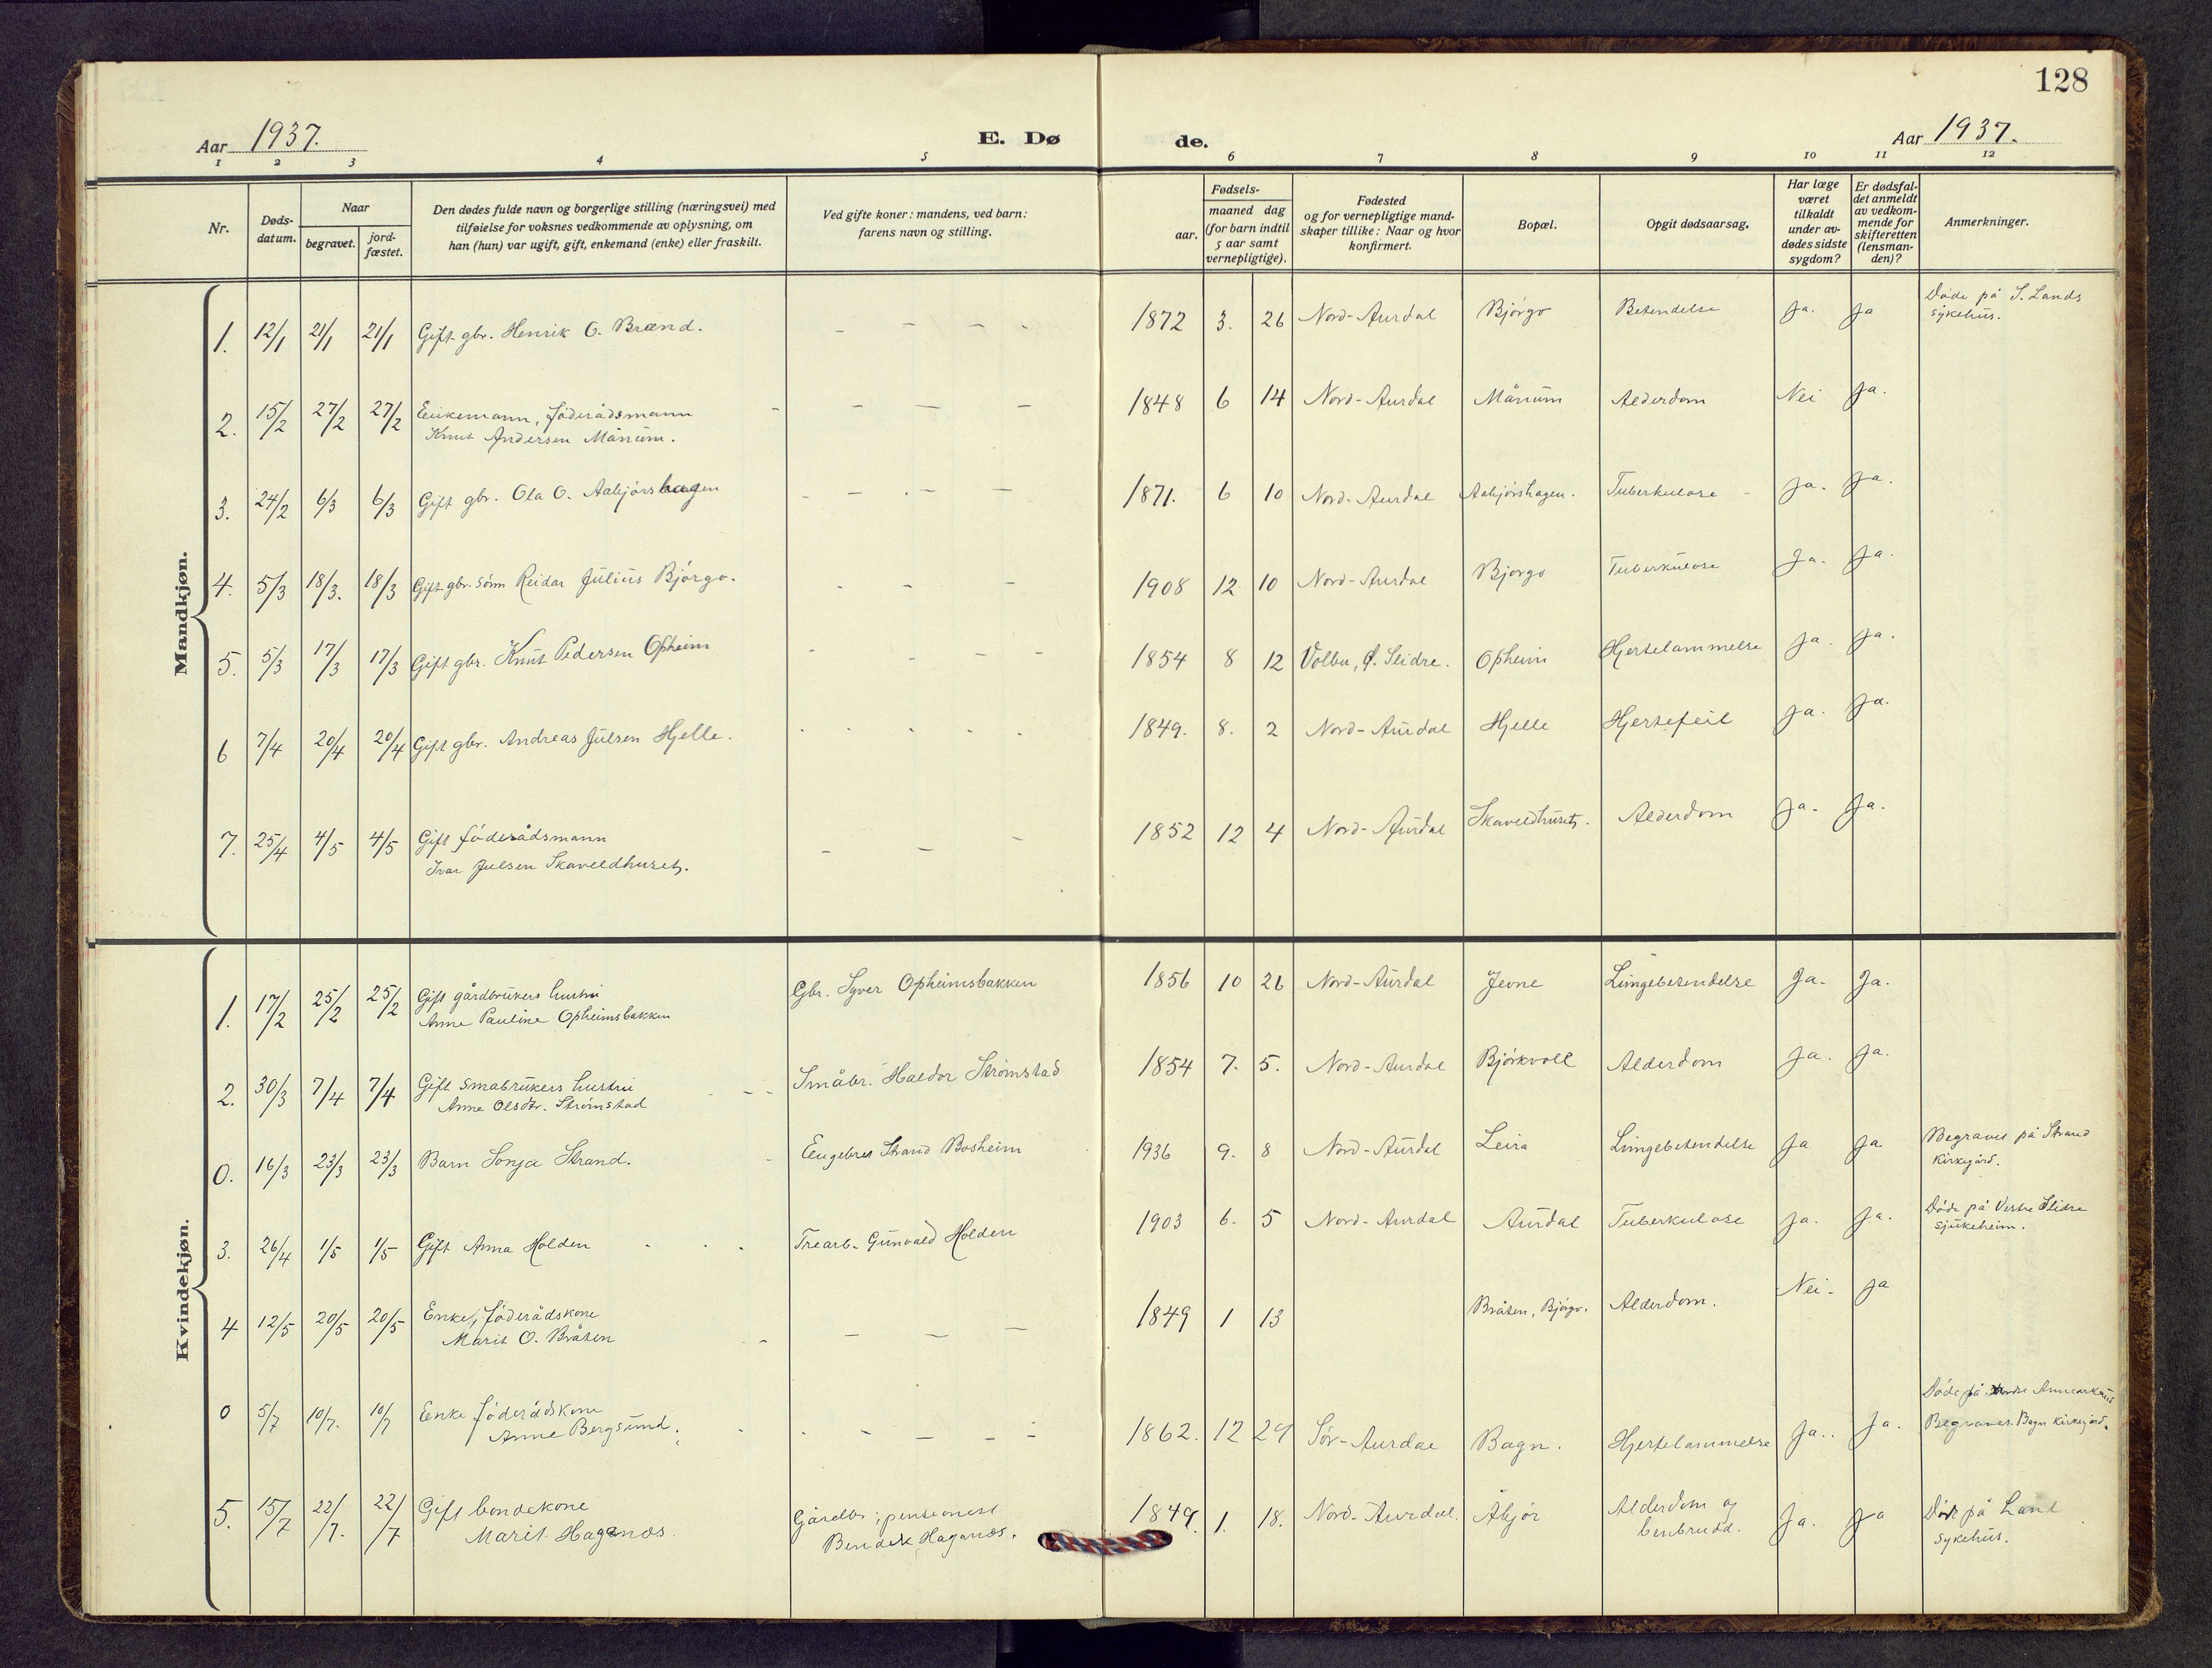 128
Aar 1937. E. Dø de. Aar 1937.
1 2 3 4 5 6 7 8 9 10 11 12
Nr.
Døds-
datum.
Naar
begravet.
jord-
fæstet.
Den dødes fulde navn og borgerlige stilling (næringsvei) med
tilføielse for voksnes vedkommende av oplysning, om
han (hun) var ugift, gift, enkemand (enke) eller fraskilt.
Ved gifte koner: mandens, ved barn:
farens navn og stilling.
Fødsels-
aar.
maaned dag
(for barn indtil
5 aar samt
vernepligtige).
Fødested
og for vernepligtige mand-
skaper tillike: Naar og hvor
konfirmert.
Bopæl.
Opgit dødsaarsag.
Har læge
været
tilkaldt
under av-
dødes sidste
sygdom?
Er dødsfal-
det anmeldt
av vedkom-
mende for
skifteretten
(lensman-
den)?
Anmerkninger.
Mandkjøn.
1. 12/1 21/1 21/1 Gift gbr. Henrik O. Brænd. - - - - 1872 3. 26 Nord-Aurdal Bjørgo Betendelse Ja. Ja Døde på S. Lands
sykehus.
2. 15/2 27/2 27/2 Enkemann, føderådsmann - - - - 1848 6 14 Nord-Aurdal Månum Alderdom Nei Ja.
Knut Andersen Månum.
3. 24/2 6/3 6/3 Gift gbr. Ola O. Aabjørshagen - - - - - 1871. 6 10 Nord-Aurdal Aabjørshagen. Tuberkulose - Ja. Ja.
4. 5/3 18/3. 18/3 Gift gbr. sønn Reidar Julius Bjørgo. - - - 1908 12 10 Nord-Aurdal Bjørgo Tuberkulose Ja. Ja.
5. 5/3 17/3 17/3 Gift gbr. Knut Pedersen Opheim - - - - 1854 8 12 Volbu, Ø. Slidre. Opheim Hjertelammelse Ja. Ja.
6 7/4 20/4 20/4 Gift gbr. Andreas Julsen Hjelle. - - - - 1849. 8. 2 Nord-Aurdal Hjelle Hjertefeil Ja. Ja.
7. 25/4 4/5 4/5 Gift føderådsmann - - - 1852 12 4 Nord-Aurdal Skaveldhuset. Alderdom Ja. Ja.
Ivar Julsen Skaveldhuset.
Kvindekjøn.
1. 17/2 25/2 25/2 Gift gårdbrukers hustru Gbr. Syver Opheimsbakken 1856 10 26 Nord-Aurdal Jevne Lungebetendelse Ja. Ja.
Anne Pauline Opheimsbakken
2. 30/3 7/4 7/4 Gift småbrukers hustru - - - Småbr. Haldor Strømstad 1854 7. 5. Nord-Aurdal Bjørkvoll Alderdom Ja. Ja.
Anne Olsdtr. Strømstad
0. 16/3 23/3 23/3 Barn Sonja Strand. - Engebret Strand Bosheim 1936 9. 8 Nord-Aurdal Leira Lungebetendelse Ja Ja Begravet på Strand
kirkegård.
3. 26/4 1/5 1/5 Gift Anna Holden - - - Trearb. Gunvald Holden 1903 6. 5 Nord-Aurdal Aurdal Tuberkulose Ja. Ja. Døde på Vestre Slidre
sjukeheim.
4 12/5 20/5 20/5 Enke, føderådskone - - - - 1849 1 13 Bråten, Bjørgo. Alderdom. Nei. Ja
Marit O. Bråten
0 5/7 10/7. 10/7 Enke føderådskone - - - - - - 1862. 12 29 Sør-Aurdal Bagn. Hjertelammelse Ja. Ja. Døde på
Anne Bergsund. Begravet Bagn kirkegård.
5. 15/7 22/7. 22/7 Gift bondekone Gårdbr; pensionist 1849. 1. 18. Nord-Aurdal. Åbjør Alderdom og Ja. Ja Døde på Land
Marit Haganæs. Bendik Haganæs. benbrudd. sykehus.